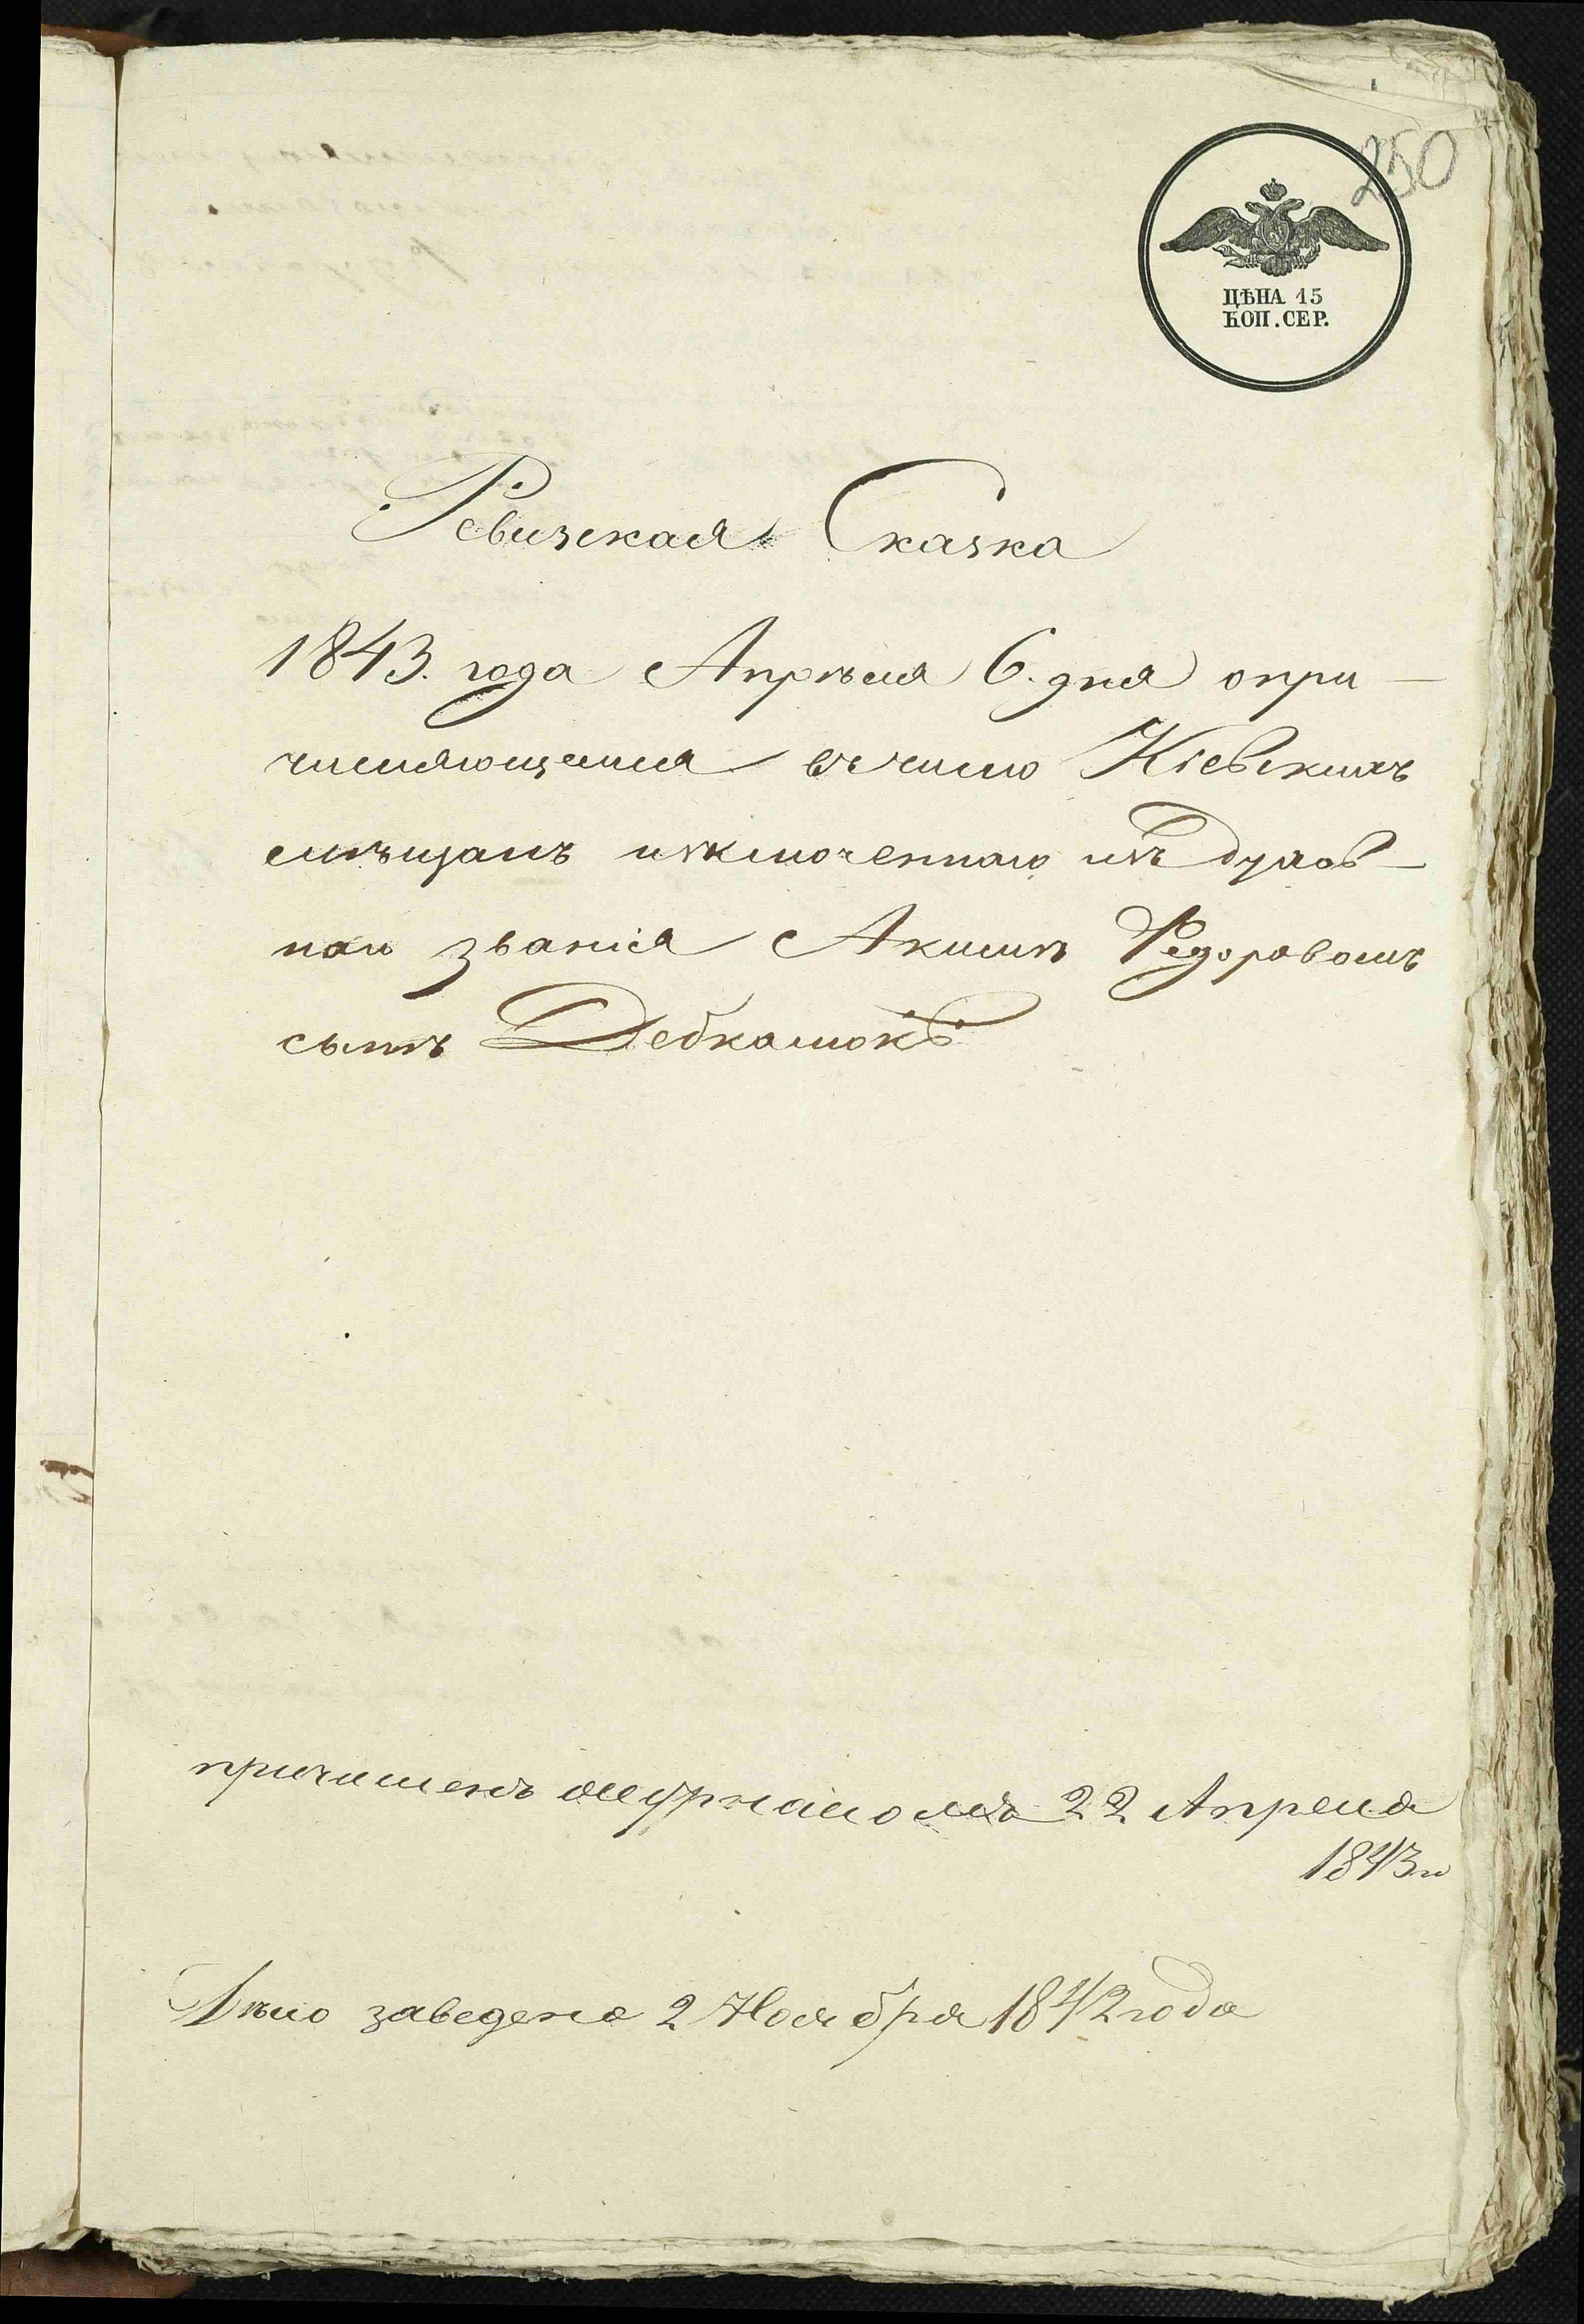 250
ЦѢНА 15
КОП. СЕР.
Ревизская Сказка
1843. года Апрѣля 6. дня опри-
числяющемся въ число Кіевскихъ
мѣщанъ исключенномъ изъ Духов-
наго званія Акимѣ Федоровомъ
сынѣ
причисленъ журналомъ 22 Апреля
1843 го
Дѣло заведено 2 Ноября 1842 года